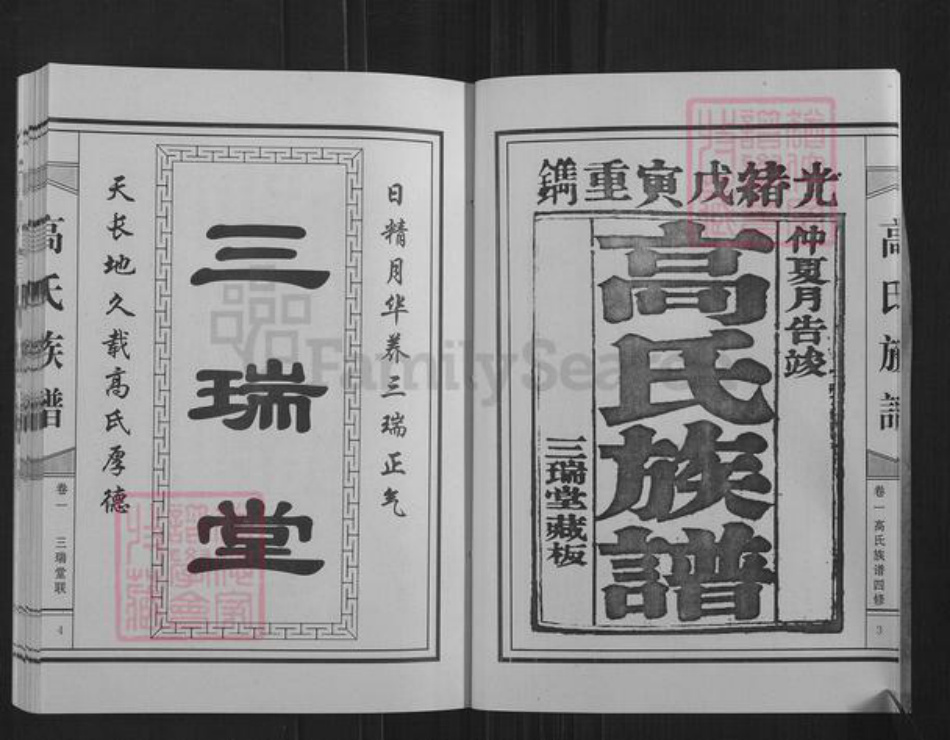 光緒戊寅重鐫
仲夏月告竣
高氏族譜
三瑞堂藏板
高氏族譜
卷一 高氏族谱四修
3
日精月华养三瑞正气
三瑞堂
天长地久载高氏厚德
高氏族譜
卷一 三瑞堂联
4
FamilySearch